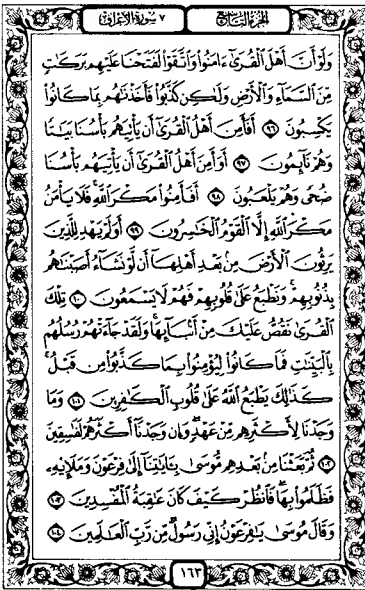 الجزء التاسع
٧ سورة الأعراف
وَلَوْ أَنَّ أَهْلَ ٱلْقُرَىٰٓ ءَامَنُوا۟ وَٱتَّقَوْا۟ لَفَتَحْنَا عَلَيْهِم بَرَكَٰتٍ
مِّنَ ٱلسَّمَآءِ وَٱلْأَرْضِ وَلَٰكِن كَذَّبُوا۟ فَأَخَذْنَٰهُم بِمَا كَانُوا۟
يَكْسِبُونَ ٩٦ أَفَأَمِنَ أَهْلُ ٱلْقُرَىٰٓ أَن يَأْتِيَهُم بَأْسُنَا بَيَٰتًا
وَهُمْ نَآئِمُونَ ٩٧ أَوَأَمِنَ أَهْلُ ٱلْقُرَىٰٓ أَن يَأْتِيَهُم بَأْسُنَا
ضُحًى وَهُمْ يَلْعَبُونَ ٩٨ أَفَأَمِنُوا۟ مَكْرَ ٱللَّهِ ۚ فَلَا يَأْمَنُ
مَكْرَ ٱللَّهِ إِلَّا ٱلْقَوْمُ ٱلْخَٰسِرُونَ ٩٩ أَوَلَمْ يَهْدِ لِلَّذِينَ
يَرِثُونَ ٱلْأَرْضَ مِنۢ بَعْدِ أَهْلِهَآ أَن لَّوْ نَشَآءُ أَصَبْنَٰهُم
بِذُنُوبِهِمْ ۚ وَنَطْبَعُ عَلَىٰ قُلُوبِهِمْ فَهُمْ لَا يَسْمَعُونَ ١٠٠ تِلْكَ
ٱلْقُرَىٰ نَقُصُّ عَلَيْكَ مِنْ أَنۢبَآئِهَا ۚ وَلَقَدْ جَآءَتْهُمْ رُسُلُهُم
بِٱلْبَيِّنَٰتِ فَمَا كَانُوا۟ لِيُؤْمِنُوا۟ بِمَا كَذَّبُوا۟ مِن قَبْلُ ۚ
كَذَٰلِكَ يَطْبَعُ ٱللَّهُ عَلَىٰ قُلُوبِ ٱلْكَٰفِرِينَ ١٠١ وَمَا
وَجَدْنَا لِأَكْثَرِهِم مِّنْ عَهْدٍ ۖ وَإِن وَجَدْنَآ أَكْثَرَهُمْ لَفَٰسِقِينَ
١٠٢ ثُمَّ بَعَثْنَا مِنۢ بَعْدِهِم مُّوسَىٰ بِـَٔايَٰتِنَآ إِلَىٰ فِرْعَوْنَ وَمَلَإِي۟هِۦ
فَظَلَمُوا۟ بِهَا ۖ فَٱنظُرْ كَيْفَ كَانَ عَٰقِبَةُ ٱلْمُفْسِدِينَ ١٠٣
وَقَالَ مُوسَىٰ يَٰفِرْعَوْنُ إِنِّى رَسُولٌ مِّن رَّبِّ ٱلْعَٰلَمِينَ ١٠٤
١٦٣